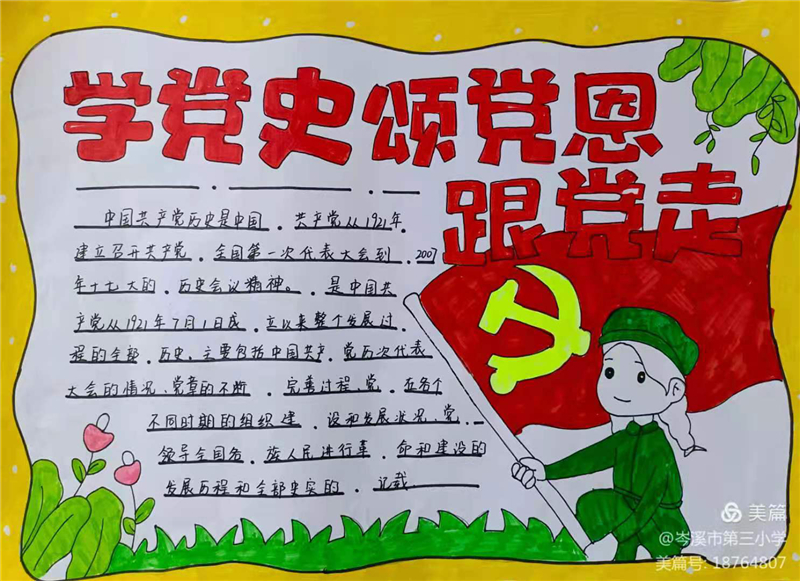 学党史颂党恩
跟党走
中国共产党历史是中国.共产党从1921年.
建立召开共产党.全国第一次代表大会到.2007
年十七大的.历史会议精神。.是中国共
产党从1921年7月1日成.立以来整个发展过.
程的全部.历史、主要包括中国共产.党历次代表
大会的情况、党章的不断.完善过程、党.在各个
不同时期的组织建.设和发展状况、党.
领导全国各.族人民进行革.命和建设的
发展历程和全部史实的.记载
美篇
@岑溪市第三小学
美篇号:18764807